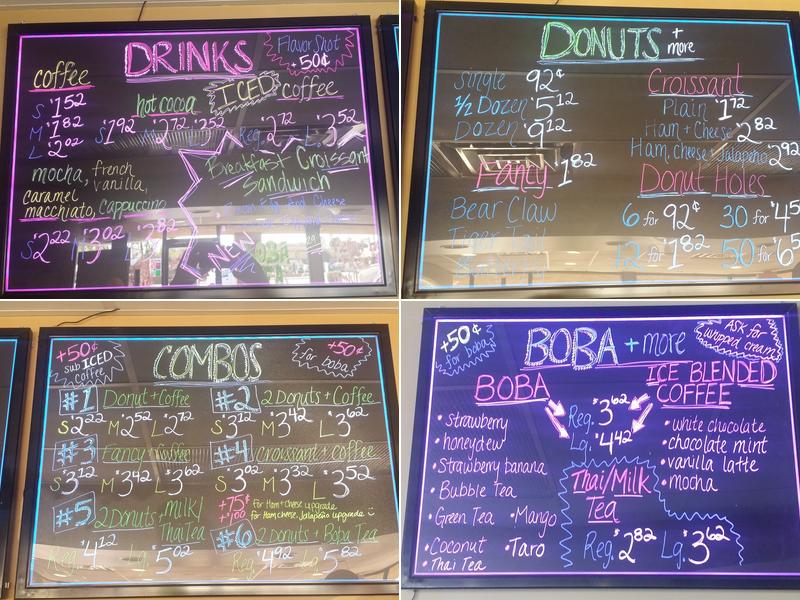 DRINKS
Flavor Shot
+50¢
coffee
S $1.52
M $1.82
L $2.02
hot cocoa
S $1.92 M $2.72 L $3.52
ICED coffee
Reg. $2.72 L $3.52
mocha, french
vanilla,
caramel
macchiato, Cappuccino
S $2.22 M $3.02 L $3.82
Breakfast Croissant
Sandwich
NEW
DONUTS + more
single 92¢
1/2 Dozen $5.12
Dozen $9.12
Fancy $1.82
Bear Claw
Tiger Tail
Croissant
Plain $1.72
Ham + Cheese $2.82
Ham, cheese + Jalapeño $2.92
Donut Holes
6 for 92¢ 30 for $4.5
12 for $1.82 50 for $6.5
+50¢
sub ICED
coffee
COMBOS
+50¢
for boba
#1 Donut + Coffee
S $2.22 M $2.52 L $2.72
#2 2 Donuts + Coffee
S $3.12 M $3.42 L $3.62
#3 Fancy + Coffee
S $3.12 M $3.42 L $3.62
#4 croissant + coffee
S $3.02 M $3.32 L $3.52
+75¢ for Ham + cheese upgrade
+$1.00 for Ham, cheese, Jalapeño upgrade
#5 2 Donuts + milk/
Thai Tea
Reg. $4.12 Lg. $5.02
#6 2 Donuts + Boba Tea
Reg. $4.92 Lg. $5.82
+50¢
for boba
BOBA + more
ASK for
whipped cream
BOBA
• strawberry
• honeydew
• Strawberry banana
• Bubble Tea
• Green Tea • Mango
• Coconut • Taro
• Thai Tea
Reg. $3.62
Lg. $4.42
ICE BLENDED
COFFEE
• white chocolate
• chocolate mint
• vanilla latte
• mocha
Thai/Milk
Tea
Reg. $2.82 Lg. $3.62